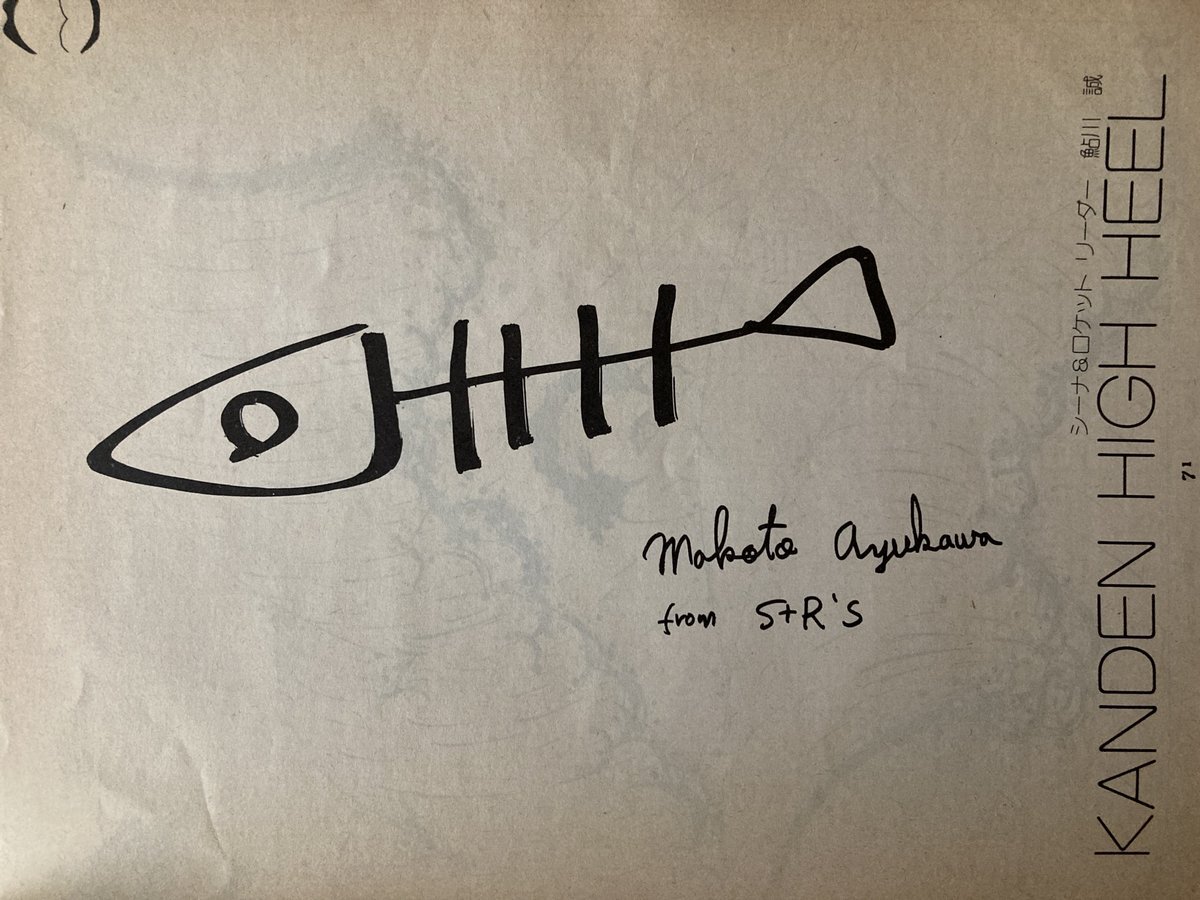 Makoto Ayukawa
from S+R'S
シーナ&ロケット リーダー 鮎川 誠
KANDEN HIGH HEEL
71